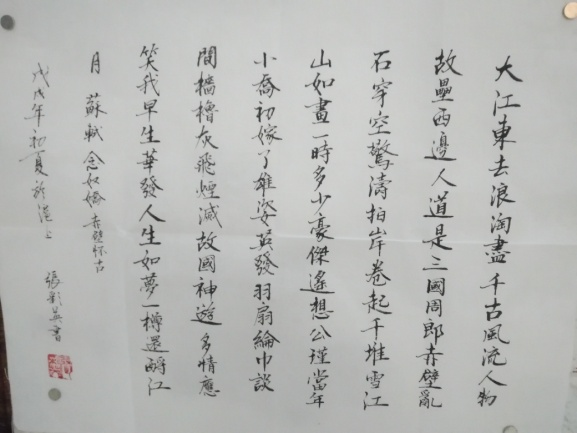 大江東去浪淘盡千古風流人物
故壘西邊人道是三國周郎赤壁亂
石穿空驚濤拍岸卷起千堆雪江
山如畫一時多少豪傑遙想公瑾當年
小喬初嫁了雄姿英發羽扇綸巾談
間檣櫓灰飛煙滅故國神遊多情應
笑我早生華發人生如夢一樽還酹江
月 蘇軾 念奴嬌 赤壁怀古
戊戌年初夏於 上 張 英書